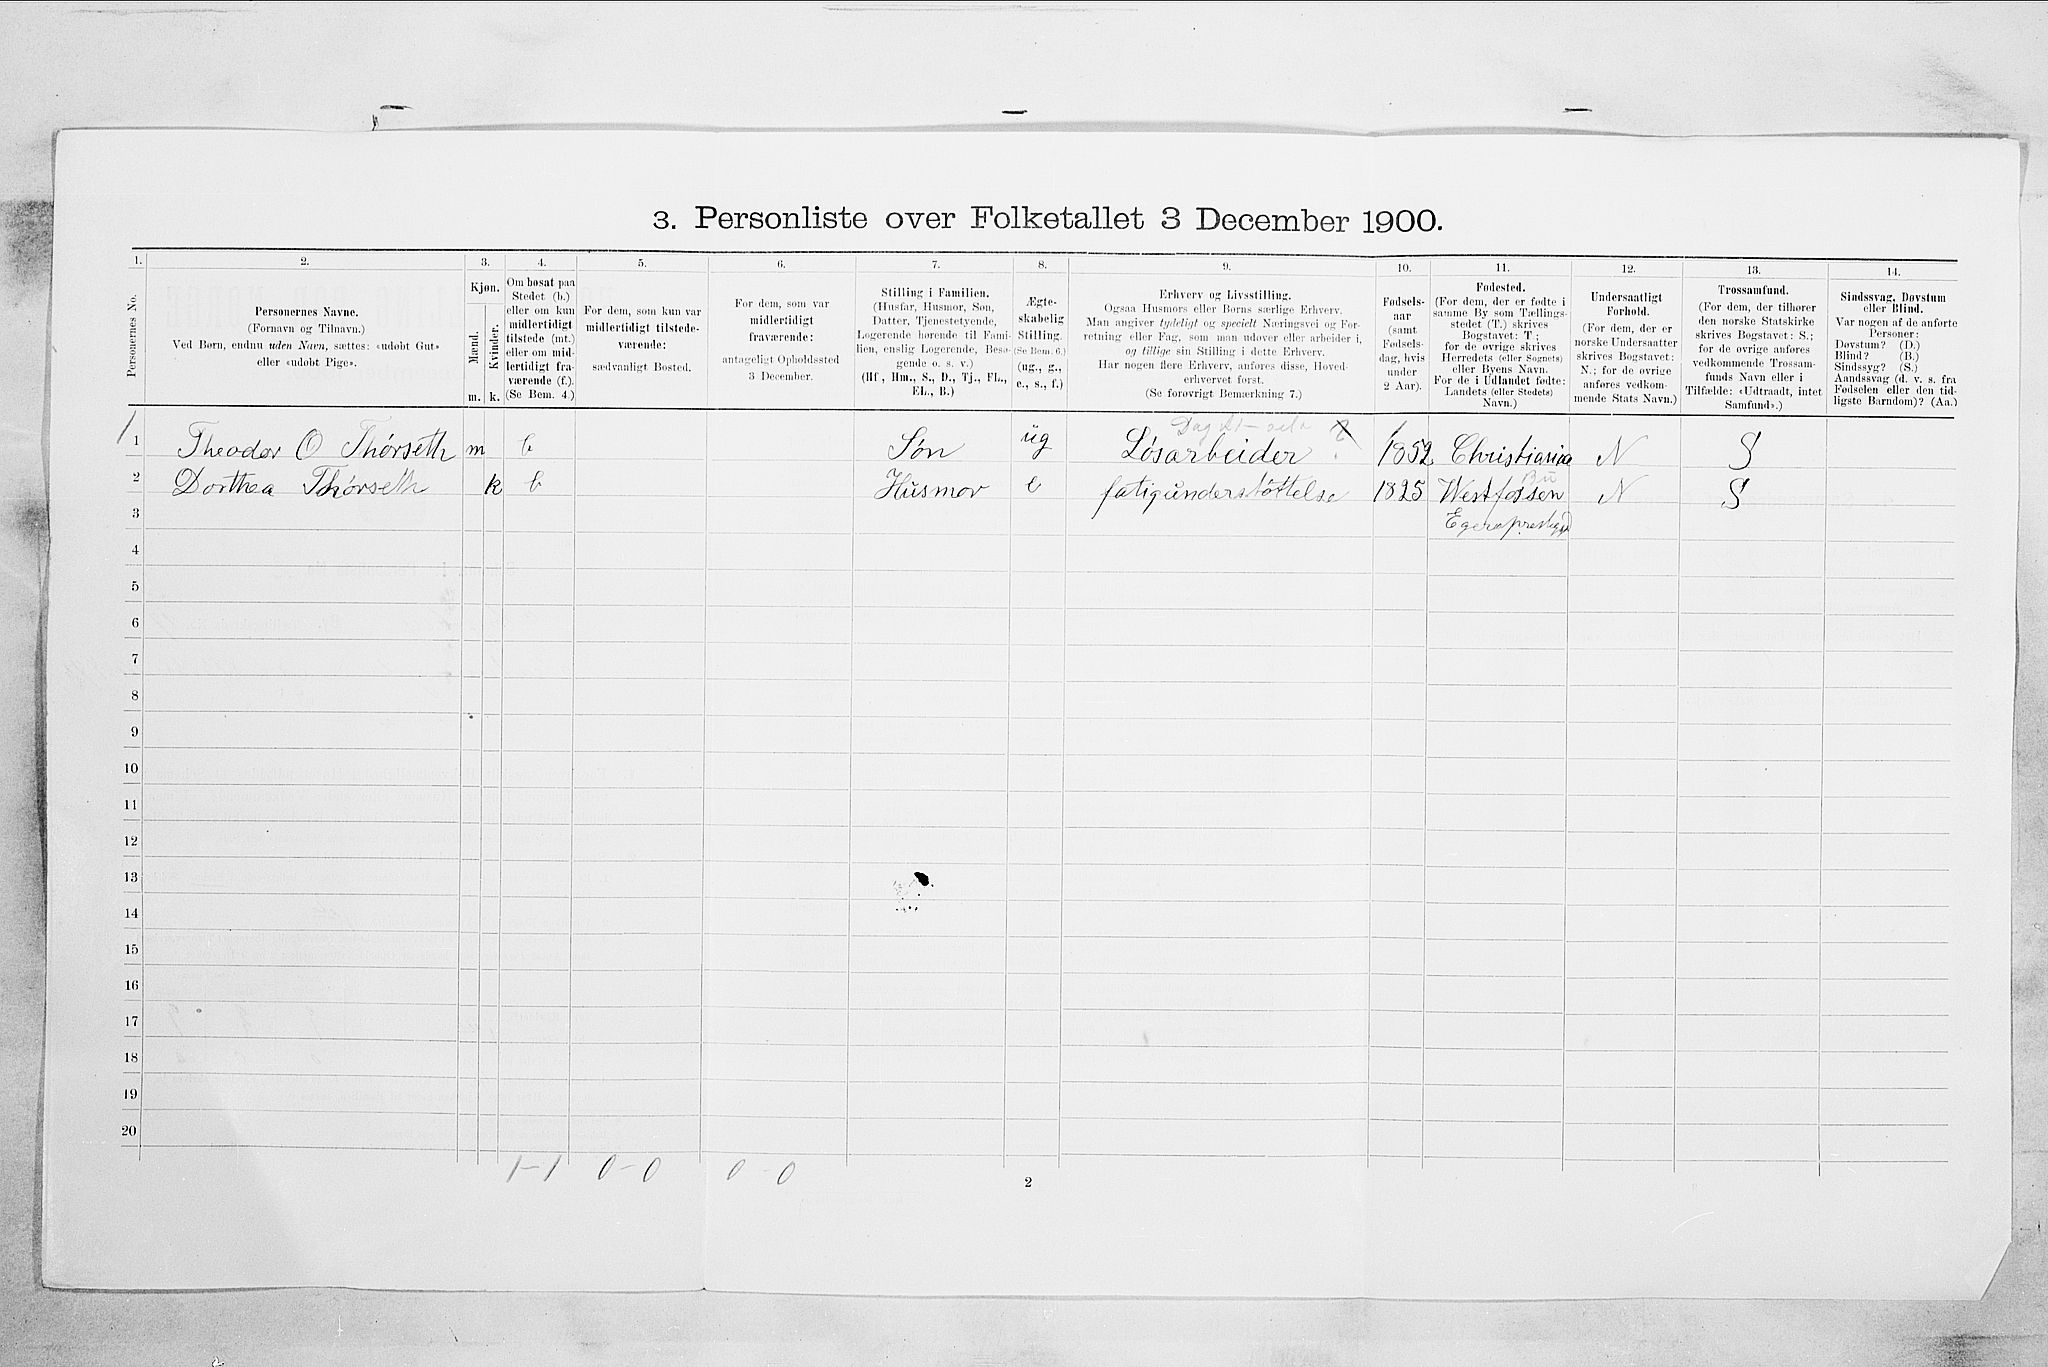 3. Personliste over Folketallet 3 December 1900.
1. 2. 3. 4. 5. 6. 7. 8. 9. 10. 11. 12. 13. 14.
Personernes No.
Personernes Navne.
(Fornavn og Tilnavn.)
Ved Børn, endnu uden Navn, sættes: «udøbt Gut»
eller «udøbt Pige».
Kjøn.
Mænd.
Kvinder.
m. k.
Om bosat paa
Stedet (b.)
eller om kun
midlertidigt
tilstede (mt.)
eller om mid-
lertidigt fra-
værende (f.).
(Se Bem. 4.)
For dem, som kun var
midlertidigt tilstede-
værende:
sædvanligt Bosted.
For dem, som var
midlertidigt
fraværende:
antageligt Opholdssted
3 December.
Stilling i Familien.
(Husfar, Husmor, Søn,
Datter, Tjenestetyende,
Logerende hørende til Fami-
lien, enslig Logerende, Besø-
gende o. s. v.)
(Hf., Hm., S., D., Tj., FL.,
EL., B.)
Ægte-
skabelig
Stilling.
(Se Bem. 6.)
(ug., g.,
e., s., f.)
Erhverv og Livsstilling.
Ogsaa Husmors eller Børns særlige Erhverv.
Man angiver tydeligt og specielt Næringsvei og For-
retning eller Fag, som man udøver eller arbeider i,
og tillige sin Stilling i dette Erhverv.
Har nogen flere Erhverv, anføres disse, Hoved-
erhvervet først.
(Se forøvrigt Bemærkning 7.)
Fødsels-
aar
(samt
Fødsels-
dag, hvis
under
2 Aar).
Fødested.
(For dem, der er fødte i
samme By som Tællings-
stedet (T.) skrives
Bogstavet: T;
for de øvrige skrives
Herredets (eller Sognets)
eller Byens Navn.
For de i Udlandet fødte:
Landets (eller Stedets)
Navn.)
Undersaatligt
Forhold.
(For dem, der er
norske Undersaatter
skrives Bogstavet:
N.; for de øvrige
anføres vedkom-
mende Stats Navn.)
Trossamfund.
(For dem, der tilhører
den norske Statskirke
skrives Bogstavet: S.;
for de øvrige anføres
vedkommende Trossam-
funds Navn eller i
Tilfælde: «Udtraadt, intet
Samfund».)
Sindssvag, Døvstum
eller Blind.
Var nogen af de anførte
Personer:
Døvstum? (D.)
Blind? (B.)
Sindssyg? (S.)
Aandssvag (d. v. s. fra
Fødselen eller den tid-
ligste Barndom)? (Aa.)
1 Theodor O Thørseth m b Søn ug Løsarbeider ? 1852 Christiania N S
2 Dorthea Thørseth k b Husmor e fatigunderstøttelse 1825 Westfossen N S
3
4
5
6
7
8
9
10
11
12
13
14
15
16
17
18
19
20
1-1 0-0 0-0
2